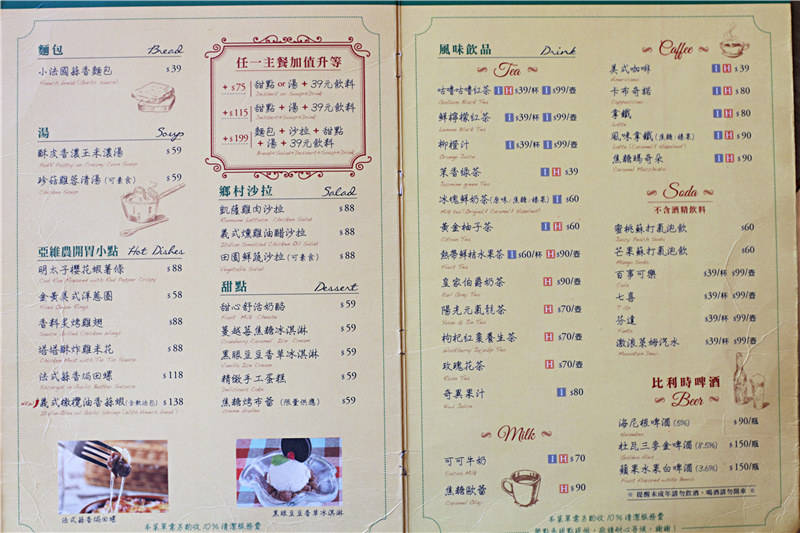 麵包 Bread
小法國蒜香麵包 $39
French Bread (Garlic Sauce)
湯 Soup
酥皮香濃玉米濃湯 $59
珍菇雞蓉清湯 (可素食) $59
Chicken Soup
亞維農開胃小點 Hot Dishes
明太子櫻花蝦薯條 $88
金黃美式洋蔥圈 $58
Fried Onion Rings
香料炙烤雞翅 $88
塔塔酥炸雞米花 $88
法式蒜香焗田螺 $118
義式橄欖油香蒜蝦 (含軟法包) $138
法式蒜香焗田螺
任一主餐加值升等
+$75 甜點 or 湯 + 39元飲料
Dessert or Soup+Drink
+$115 甜點 + 湯 + 39元飲料
Dessert+Soup+Drink
+$199 麵包 + 沙拉 + 甜點
+ 湯 + 39元飲料
Bread+Salad+Dessert+Soup+Drink
鄉村沙拉 Salad
凱薩雞肉沙拉 $88
Romaine Lettuce Chicken Salad
義式燻雞油醋沙拉 $88
Italian Smoked Chicken Oil Salad
田園鮮蔬沙拉 (可素食) $88
Vegetable Salad
甜點 Dessert
甜心舒活奶酪 $59
Fruit Milk Cheese
蔓越莓焦糖冰淇淋 $59
Cranberry Caramel Ice Cream
黑眼豆豆香草冰淇淋 $59
Vanilla Ice Cream
精緻手工蛋糕 $59
Delicious Cake
焦糖烤布蕾 (限量供應) $59
黑眼豆豆香草冰淇淋
本菜單需另酌收10%清潔服務費
風味飲品 Drink
Tea
咕嚕咕嚕紅茶 I H $39/杯 I $99/壺
鮮檸檬紅茶 I $39/杯 I $99/壺
Lemon Black Tea
柳橙汁 I $39/杯 I $99/壺
Orange Juice
茉香綠茶 I H $39/杯 I $99/壺
Jasmine green Tea
冰塊鮮奶茶 (原味/焦糖/榛果) I $60
黃金柚子茶 I H $60
Citron Tea
熱帶鮮桔水果茶 I $60/杯 H $90/壺
Fruit Tea
皇家伯爵奶茶 H $90/壺
Earl Grey Tea
陽光元氣毡茶 H $70/壺
枸杞紅棗養生茶 H $70/壺
玫瑰花茶 H $70/壺
Rose Tea
奇異果汁 I $80
Kiwi Juice
Milk
可可牛奶 I H $70
Cocoa Milk
焦糖歐蕾 H $90
Coffee
美式咖啡 I H $39
Americano
卡布奇諾 I H $80
Cappuccino
拿鐵 I H $80
Latte
風味拿鐵 (焦糖/榛果) I H $90
Latte (Caramel/Hazelnut)
焦糖瑪奇朵 I H $90
Caramel Macchiato
Soda
不含酒精飲料
蜜桃蘇打氣泡飲 $60
芒果蘇打氣泡飲 $60
Mango Soda
百事可樂 $39/杯 $99/壺
Cola
七喜 $39/杯 $99/壺
7-Up
芬達 $39/杯 $99/壺
Fanta
激浪萊姆汽水 $39/杯 $99/壺
Mountain Dew
比利時啤酒
Beer
海尼根啤酒 (5%) $90/瓶
Heineken
杜瓦三麥金啤酒 (8.5%) $150/瓶
蘋果水果白啤酒 (3.6%) $150/瓶
※ 提醒未成年請勿飲酒,喝酒請勿開車 ※
本菜單需另酌收10%清潔服務費